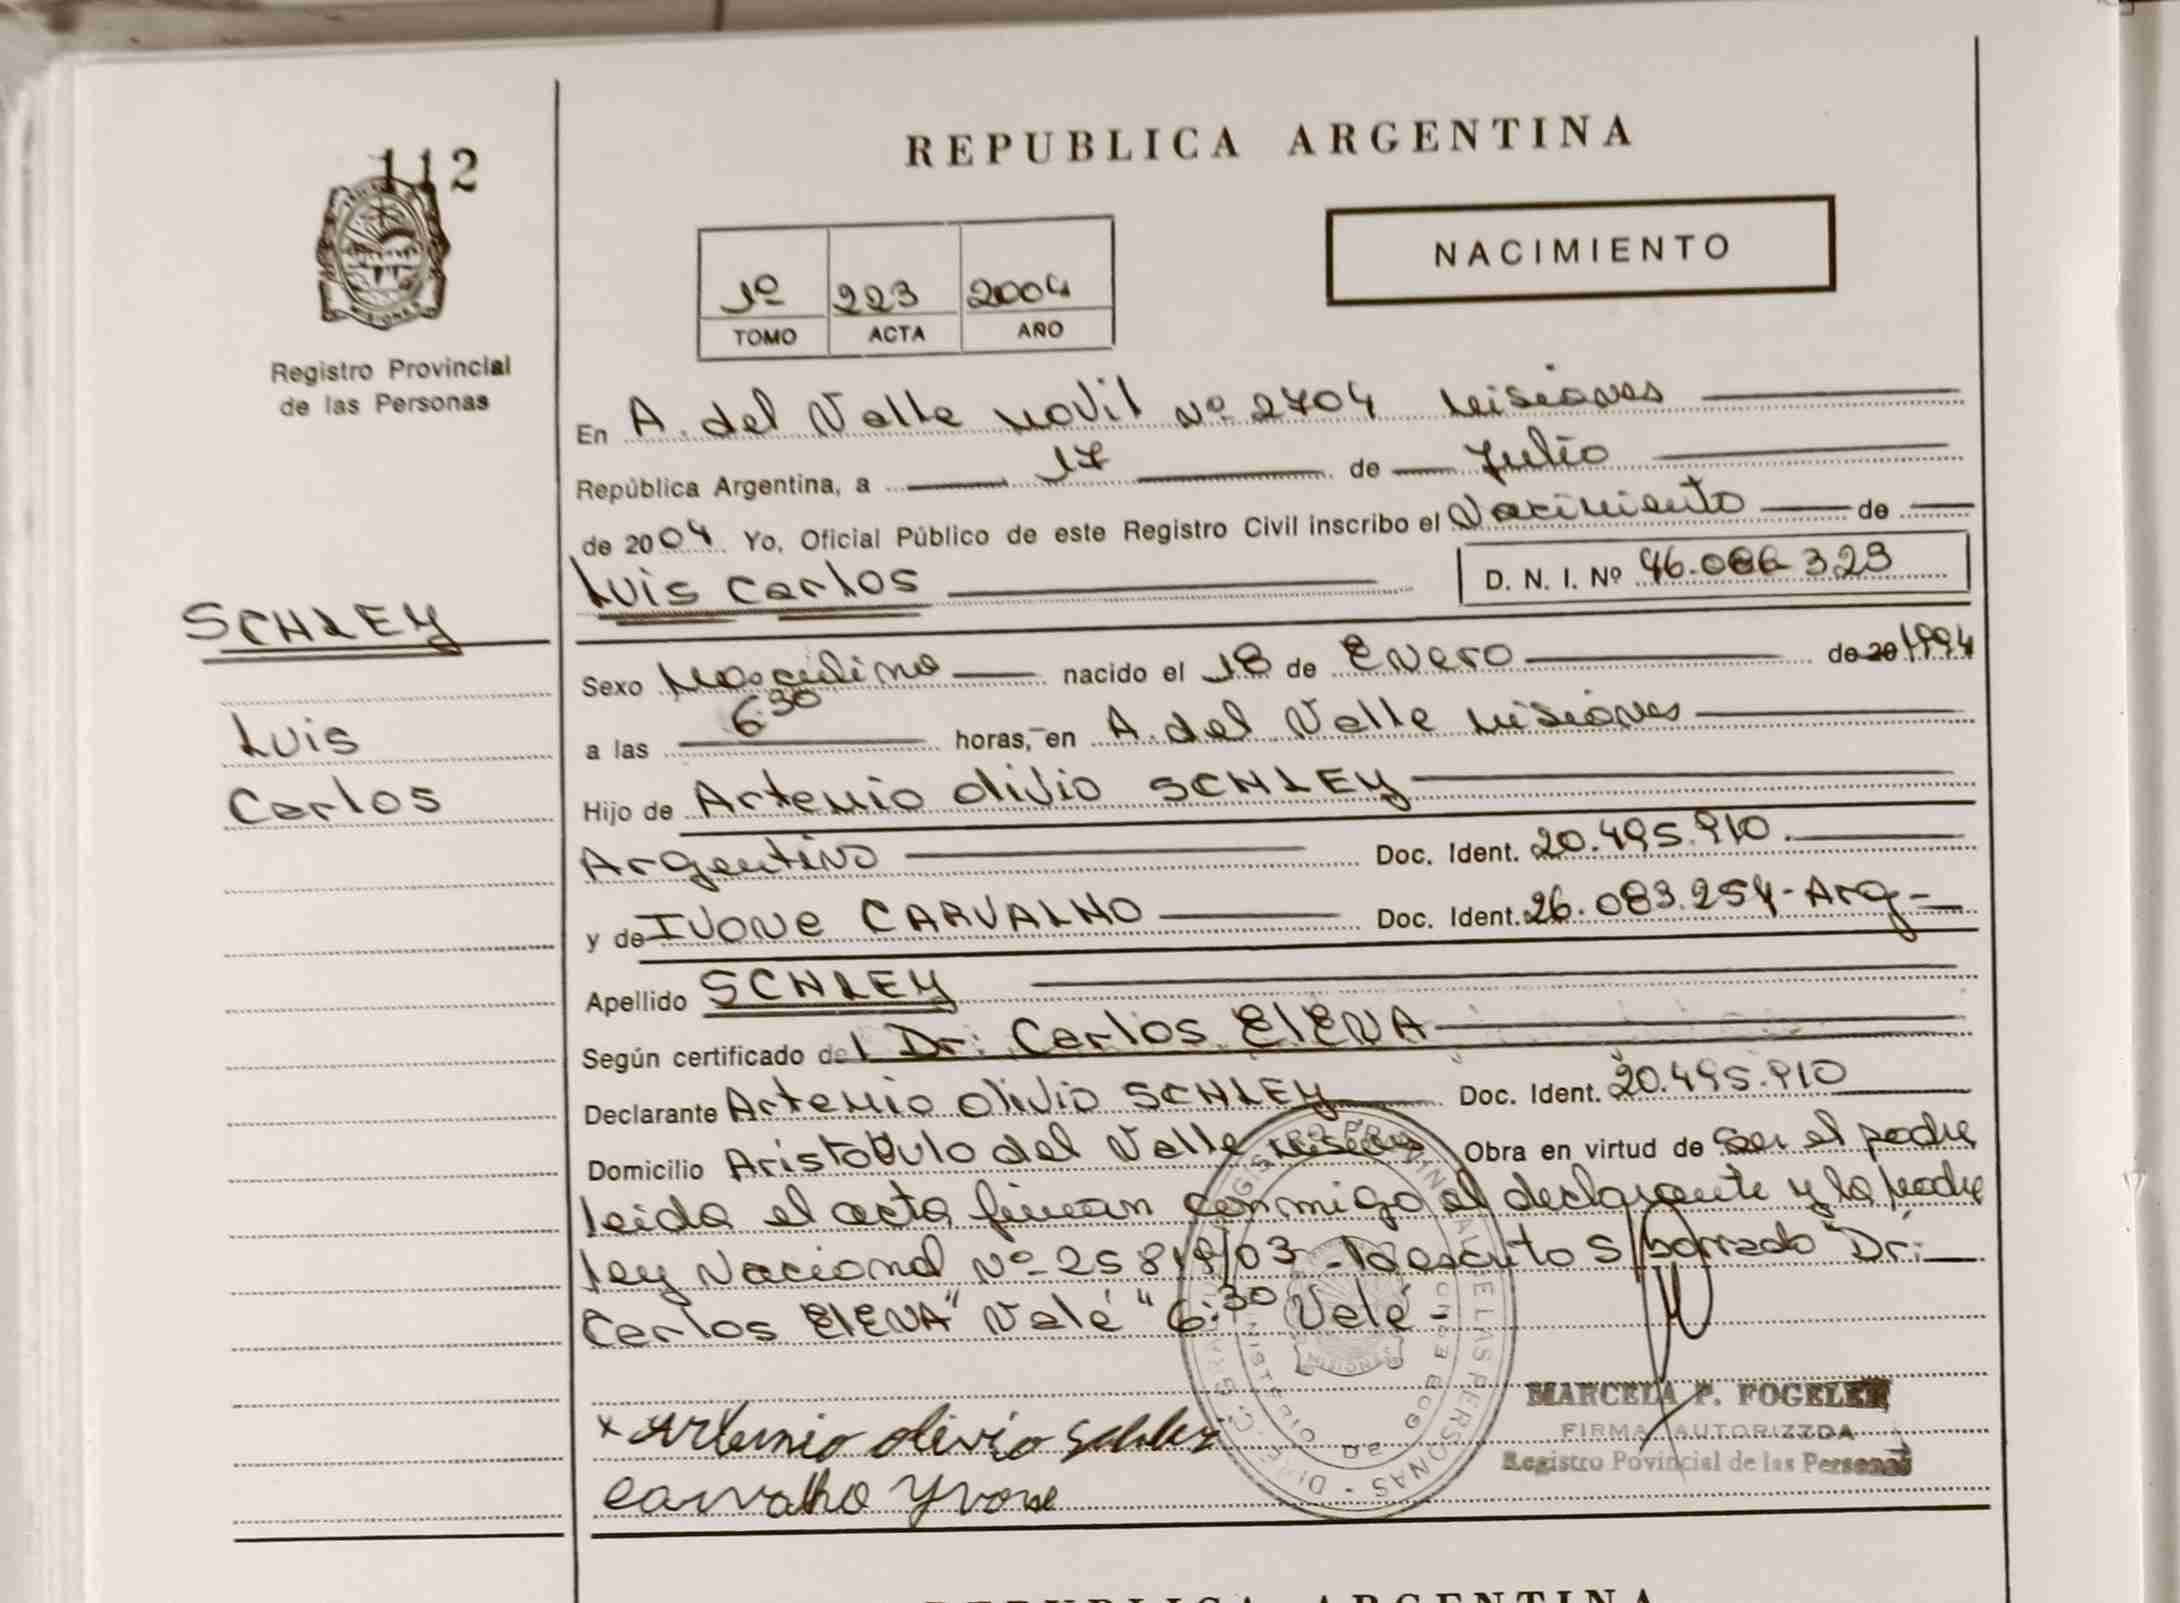 112
REPUBLICA ARGENTINA
NACIMIENTO
1º 223 2004
TOMO ACTA AÑO
Registro Provincial
de las Personas
En A. del Valle Movil Nº 2704 Misiones
República Argentina, a 17 de Julio
de 2004 Yo, Oficial Público de este Registro Civil inscribo el Nacimiento de
Luis Carlos D. N. I. Nº 46.086.323
SCHLEY
Luis
Carlos
Sexo Masculino nacido el 18 de Enero de 20 1994
a las 6:30 horas, en A. del Valle Misiones
Hijo de Artemio Olivio SCHLEY
Argentino Doc. Ident. 20.495.910.
y de IVONE CARVALHO Doc. Ident. 26.083.254-Arg-
Apellido SCHLEY
Según certificado del Dr: Carlos ELENA
Declarante Artemio Olivio SCHLEY Doc. Ident. 20.495.910
Domicilio Aristobulo del Valle Misiones Obra en virtud de Ser el padre
leida el acta firman conmigo el declarante y la Madre
ley Nacional Nº 25819/03 - lo escrito S/borrado "Dr:
Carlos ELENA" Vale "6:30 Vale -
x Artemio olivio Schley
Carvalho Yvone
MARCELA P. FOGELER
FIRMA AUTORIZZDA
Registro Povincial de las Personas
MISIONES
REPUBLICA ARGENTINA